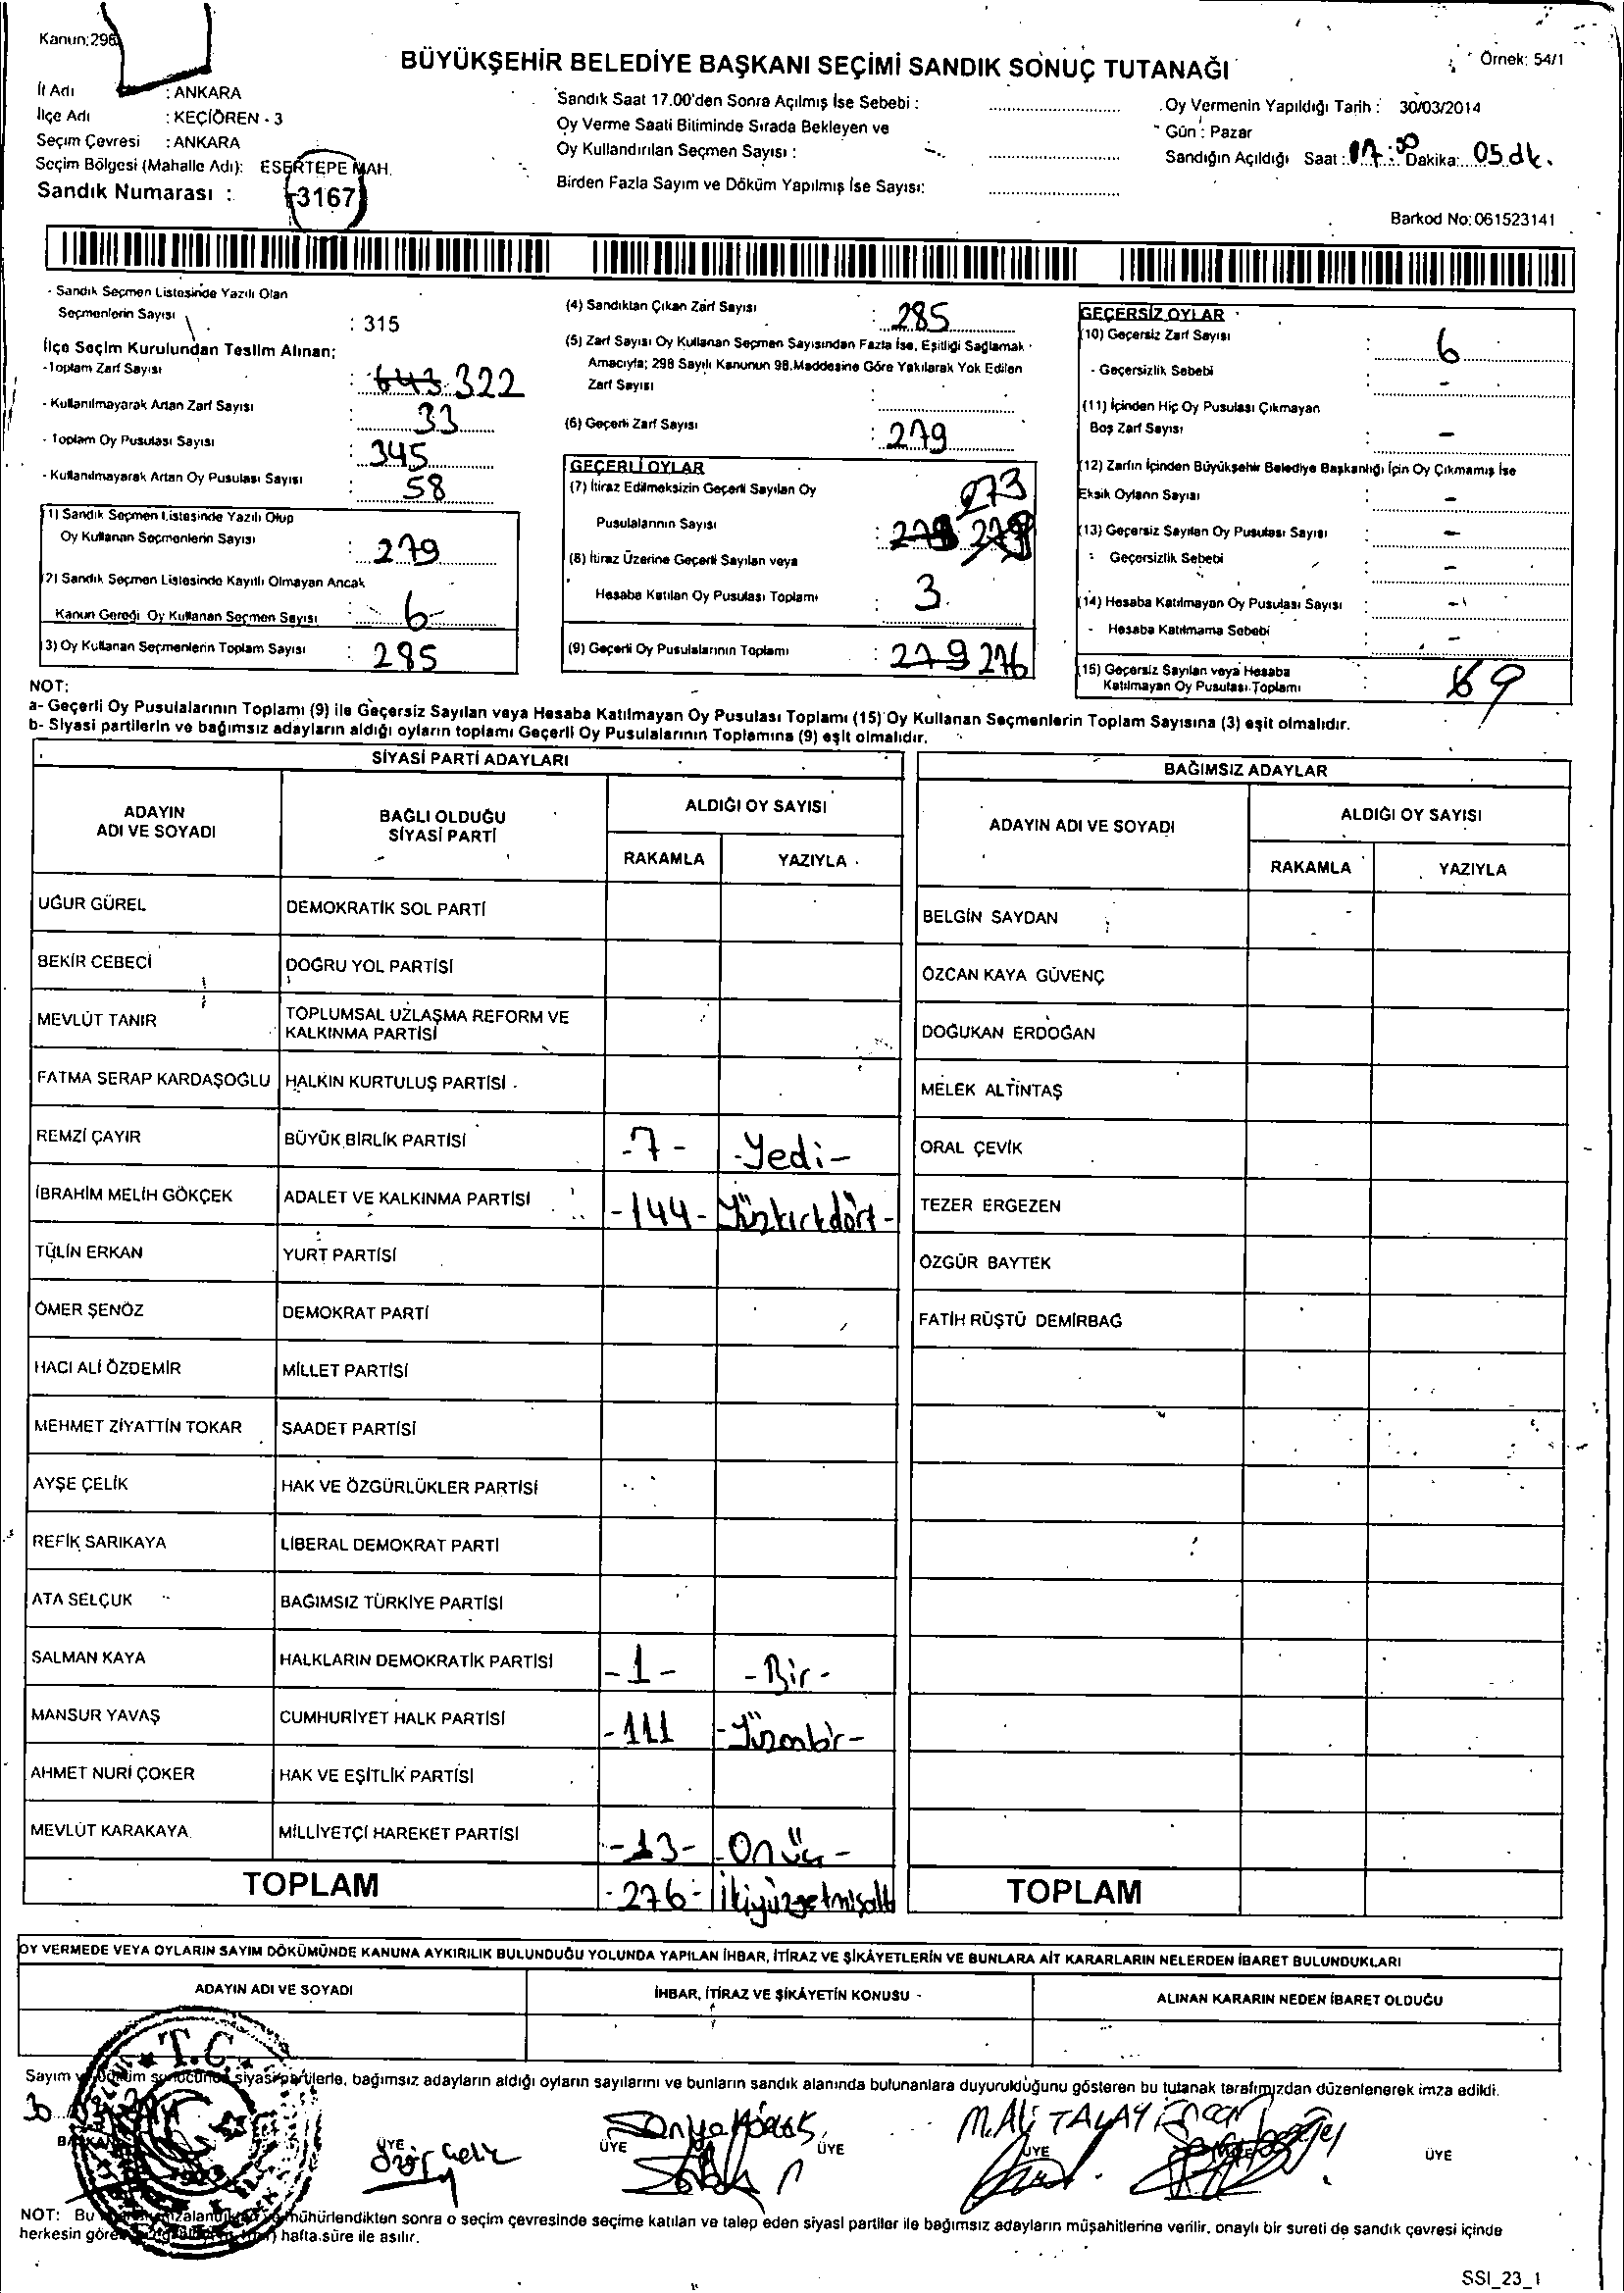 Kanun:298
BÜYÜKŞEHİR BELEDİYE BAŞKANI SEÇİMİ SANDIK SONUÇ TUTANAĞI
Örnek: 54/1
İl Adı : ANKARA
İlçe Adı : KEÇİÖREN - 3
Seçim Çevresi : ANKARA
Seçim Bölgesi (Mahalle Adı): ESERTEPE MAH.
Sandık Numarası : 3167
Sandık Saat 17.00'den Sonra Açılmış İse Sebebi :
Oy Verme Saati Bitiminde Sırada Bekleyen ve
Oy Kullandırılan Seçmen Sayısı :
Birden Fazla Sayım ve Döküm Yapılmış İse Sayısı:
Oy Vermenin Yapıldığı Tarih : 30/03/2014
Gün : Pazar
Sandığın Açıldığı Saat : 17:00 Dakika: 05 dk.
Barkod No: 061523141
- Sandık Seçmen Listesinde Yazılı Olan
Seçmenlerin Sayısı : 315
İlçe Seçim Kurulundan Teslim Alınan;
- Toplam Zarf Sayısı : 643 322
- Kullanılmayarak Artan Zarf Sayısı : 33
- Toplam Oy Pusulası Sayısı : 345
- Kullanılmayarak Artan Oy Pusulası Sayısı : 58
(1) Sandık Seçmen Listesinde Yazılı Olup
Oy Kullanan Seçmenlerin Sayısı : 279
(2) Sandık Seçmen Listesinde Kayıtlı Olmayan Ancak
Kanun Gereği Oy Kullanan Seçmen Sayısı : 6
(3) Oy Kullanan Seçmenlerin Toplam Sayısı : 285
(4) Sandıktan Çıkan Zarf Sayısı : 285
(5) Zarf Sayısı Oy Kullanan Seçmen Sayısından Fazla İse, Eşitliği Sağlamak
Amacıyla; 298 Sayılı Kanunun 98.Maddesine Göre Yakılarak Yok Edilen
Zarf Sayısı :
(6) Geçerli Zarf Sayısı : 279
GEÇERLİ OYLAR
(7) İtiraz Edilmeksizin Geçerli Sayılan Oy
Pusulalarının Sayısı : 273
(8) İtiraz Üzerine Geçerli Sayılan veya
Hesaba Katılan Oy Pusulası Toplamı : 3
(9) Geçerli Oy Pusulalarının Toplamı : 279 276
GEÇERSİZ OYLAR
(10) Geçersiz Zarf Sayısı : 6
- Geçersizlik Sebebi : -
(11) İçinden Hiç Oy Pusulası Çıkmayan
Boş Zarf Sayısı : -
(12) Zarfın İçinden Büyükşehir Belediye Başkanlığı İçin Oy Çıkmamış İse
Eksik Oyların Sayısı : -
(13) Geçersiz Sayılan Oy Pusulası Sayısı : -
- Geçersizlik Sebebi : -
(14) Hesaba Katılmayan Oy Pusulası Sayısı : -
- Hesaba Katılmama Sebebi : -
(15) Geçersiz Sayılan veya Hesaba
Katılmayan Oy Pusulası Toplamı : 9
NOT:
a- Geçerli Oy Pusulalarının Toplamı (9) ile Geçersiz Sayılan veya Hesaba Katılmayan Oy Pusulası Toplamı (15) Oy Kullanan Seçmenlerin Toplam Sayısına (3) eşit olmalıdır.
b- Siyasi partilerin ve bağımsız adayların aldığı oyların toplamı Geçerli Oy Pusulalarının Toplamına (9) eşit olmalıdır.
SİYASİ PARTİ ADAYLARI
ADAYIN ADI VE SOYADI
BAĞLI OLDUĞU SİYASİ PARTİ
ALDIĞI OY SAYISI
RAKAMLA YAZIYLA
UĞUR GÜREL DEMOKRATİK SOL PARTİ
BEKİR CEBECİ DOĞRU YOL PARTİSİ
MEVLÜT TANIR TOPLUMSAL UZLAŞMA REFORM VE
KALKINMA PARTİSİ
FATMA SERAP KARDAŞOĞLU HALKIN KURTULUŞ PARTİSİ
REMZİ ÇAYIR BÜYÜK BİRLİK PARTİSİ -7- -Yedi-
İBRAHİM MELİH GÖKÇEK ADALET VE KALKINMA PARTİSİ -144- Yüzkırkdört-
TÜLİN ERKAN YURT PARTİSİ
ÖMER ŞENÖZ DEMOKRAT PARTİ
HACI ALİ ÖZDEMİR MİLLET PARTİSİ
MEHMET ZİYATTİN TOKAR SAADET PARTİSİ
AYŞE ÇELİK HAK VE ÖZGÜRLÜKLER PARTİSİ
REFİK SARIKAYA LİBERAL DEMOKRAT PARTİ
ATA SELÇUK BAĞIMSIZ TÜRKİYE PARTİSİ
SALMAN KAYA HALKLARIN DEMOKRATİK PARTİSİ -1- -Bir-
MANSUR YAVAŞ CUMHURİYET HALK PARTİSİ -111 -Yüzonbir-
AHMET NURİ ÇOKER HAK VE EŞİTLİK PARTİSİ
MEVLÜT KARAKAYA MİLLİYETÇİ HAREKET PARTİSİ -13- -Onüç-
TOPLAM -276- İkiyüzyetmişaltı
BAĞIMSIZ ADAYLAR
ADAYIN ADI VE SOYADI
ALDIĞI OY SAYISI
RAKAMLA YAZIYLA
BELGİN SAYDAN
ÖZCAN KAYA GÜVENÇ
DOĞUKAN ERDOĞAN
MELEK ALTİNTAŞ
ORAL ÇEVİK
TEZER ERGEZEN
ÖZGÜR BAYTEK
FATİH RÜŞTÜ DEMİRBAĞ
TOPLAM
OY VERMEDE VEYA OYLARIN SAYIM DÖKÜMÜNDE KANUNA AYKIRILIK BULUNDUĞU YOLUNDA YAPILAN İHBAR, İTİRAZ VE ŞİKÂYETLERİN VE BUNLARA AİT KARARLARIN NELERDEN İBARET BULUNDUKLARI
ADAYIN ADI VE SOYADI İHBAR, İTİRAZ VE ŞİKÂYETİN KONUSU ALINAN KARARIN NEDEN İBARET OLDUĞU
T.C.
Sayım siyasi partilerle, bağımsız adayların aldığı oyların sayılarını ve bunların sandık alanında bulunanlara duyurulduğunu gösteren bu tutanak tarafımızdan düzenlenerek imza edildi.
30
ÜYE ÜYE ÜYE M.Ali TALAY ÜYE ÜYE
NOT: Bu mühürlendikten sonra o seçim çevresinde seçime katılan ve talep eden siyasi partiler ile bağımsız adayların müşahitlerine verilir, onaylı bir sureti de sandık çevresi içinde
herkesin hafta süre ile asılır.
SSI_23_1